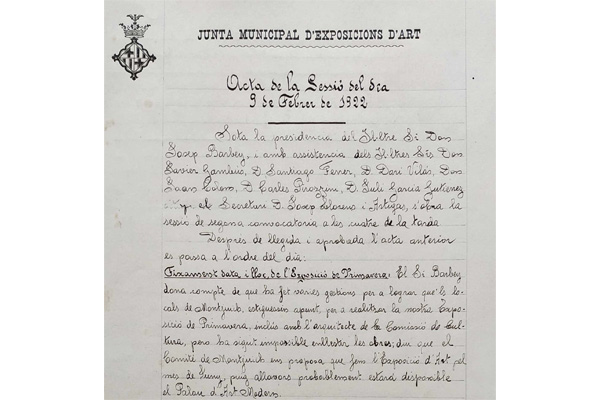 JUNTA MUNICIPAL D'EXPOSICIONS D'ART
Acta de la Sessió del dia
9 de Febrer de 1922
Sota la presidencia del Il·ltre Sr Don
Josep Barbey, i amb assistencia dels Il·ltres Srs Don
Xavier Gambús, D. Santiago Ferrer, D. Dari Vilás, Don
Joan Colom, D. Carles Pirozzini, D. Juli Garcia Gutierrez
el Secretari D. Josep Llorens i Artigas, s'obra la
sessió de segona convocatoria a les cuatre de la tarda.
Després de llegida i aprobada l'acta anterior
es passa a l'ordre del dia:
Fixament data i lloc de l'Exposició de Primavera: El Sr Barbey
dona compte de que ha fet varies gestions per a lograr que'ls lo-
cals de Montjuich, estiguessin apunt, per a realitzar la nostra Expo-
sició de Primavera, inclús amb l'arquitecte de la Comissio de Cul-
tura, però ha sigut impossible enllestir les obres; diu que el
Comité de Montjuich ens proposa que fem l'Exposició d'Art pel
mes de Juny, puig allavors probablement estará disponible
el Palau d'Art Modern.